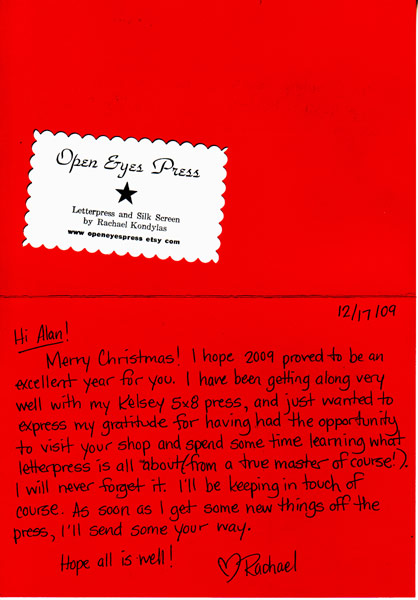 Open Eyes Press
Letterpress and Silk Screen
by Rachael Kondylas
www openeyespress etsy com
12/17/09
Hi Alan!
Merry Christmas! I hope 2009 proved to be an
excellent year for you. I have been getting along very
well with my Kelsey 5x8 press, and just wanted to
express my gratitude for having had the opportunity
to visit your shop and spend some time learning what
letterpress is all about (from a true master of course!).
I will never forget it. I'll be keeping in touch of
course. As soon as I get some new things off the
press, I'll send some your way.
Hope all is well!
Rachael